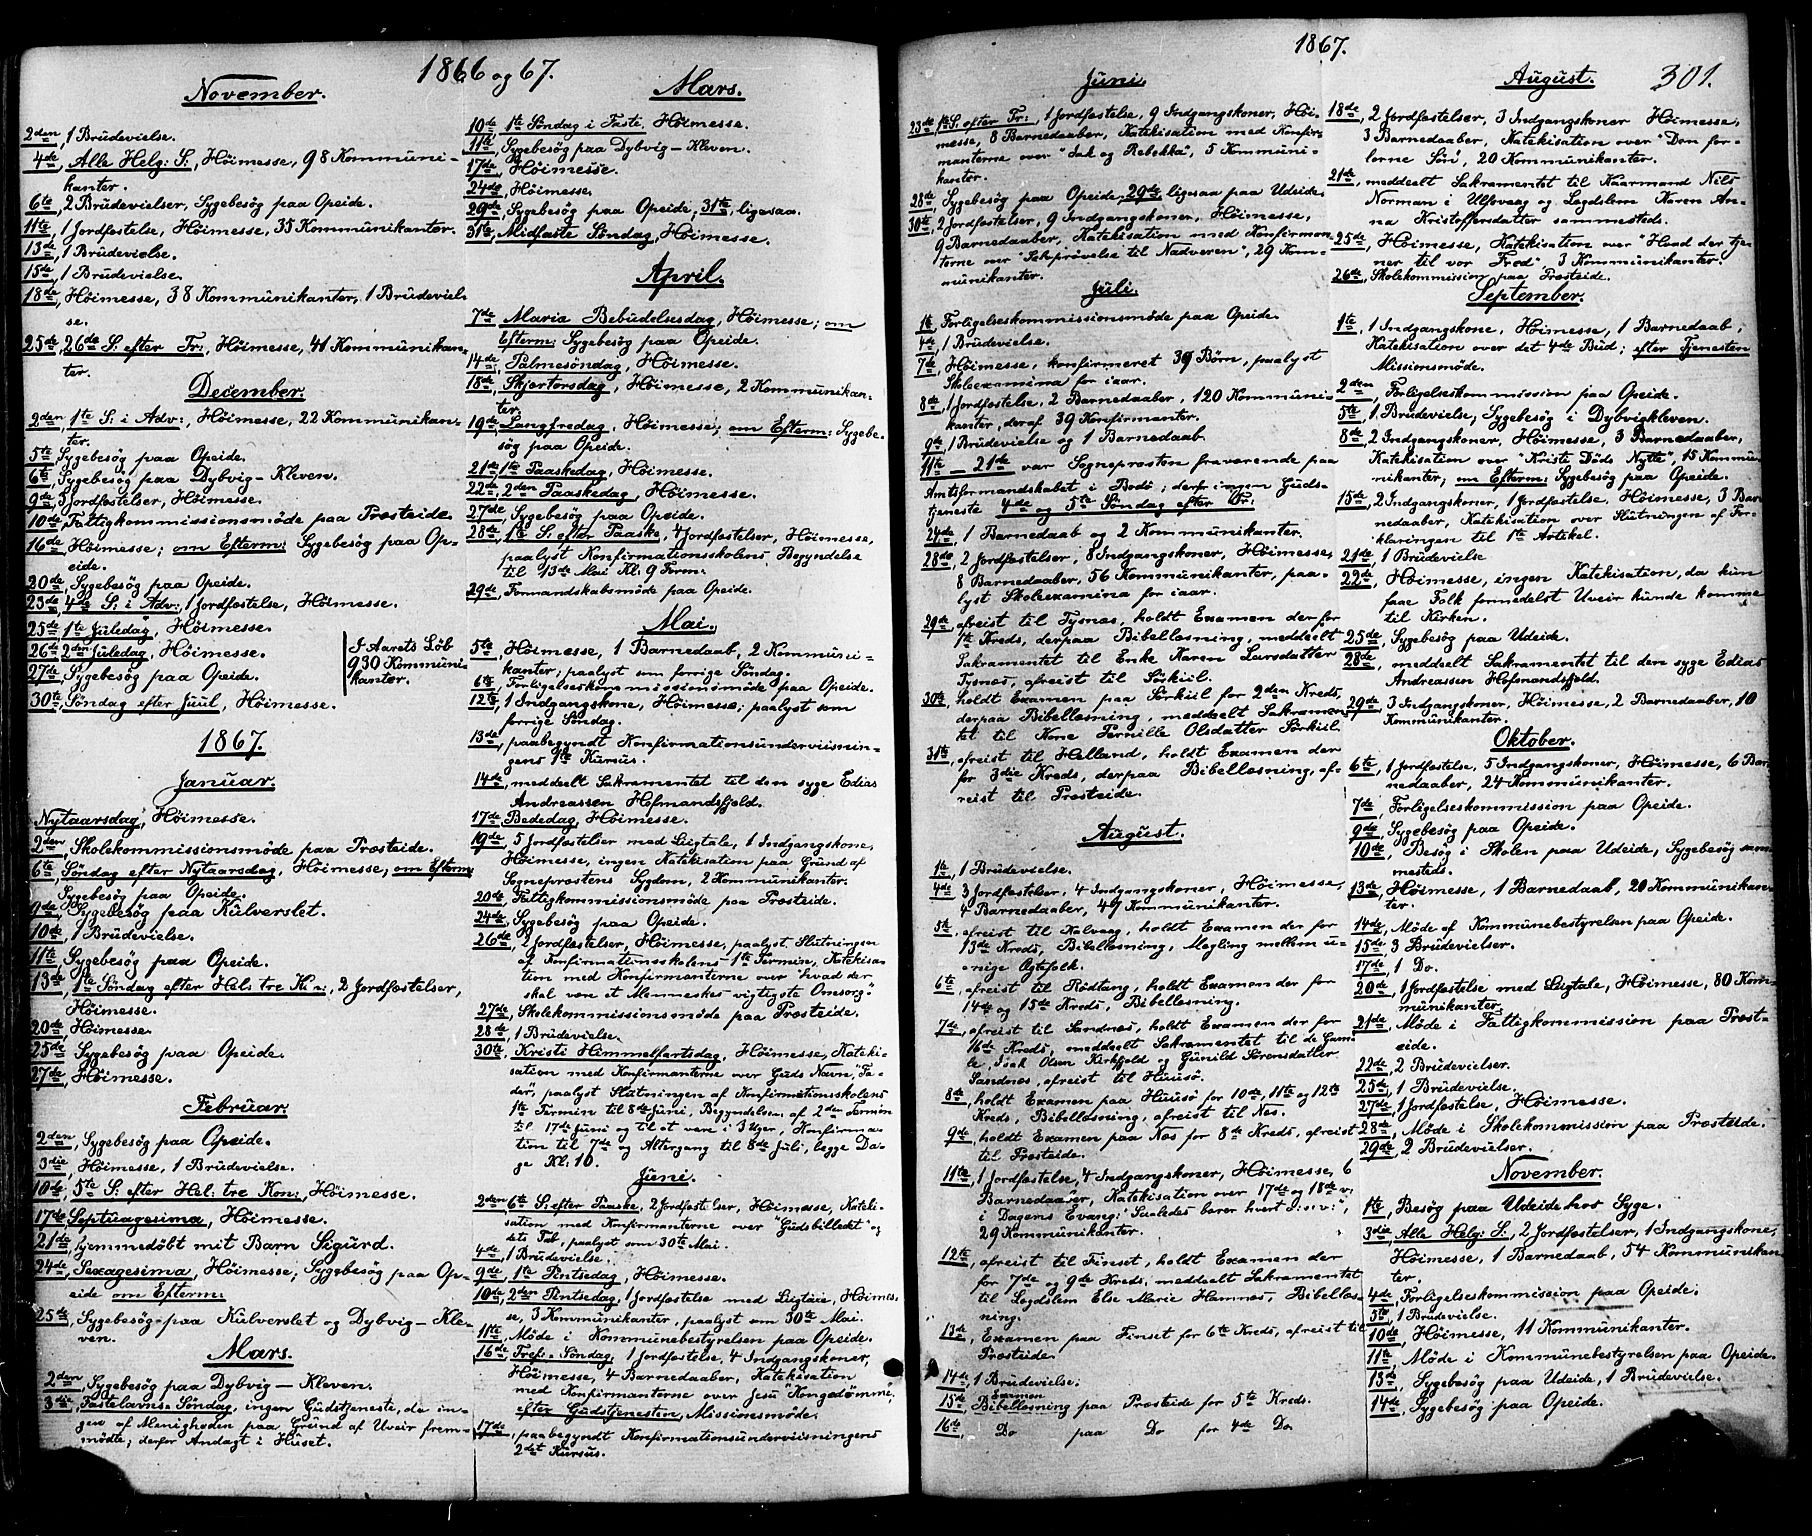 1866 og 67.
November.
2den, 1 Brudevielse.
4de, Alle Helg: S:, Höimesse, 98 Kommuni-
kanter.
6te, 2 Brudevielser, Sygebesög paa Opeide.
11te, 1 Jordfæstelse, Höimesse, 35 Kommunikanter.
13de, 1 Brudevielse.
15de, 1 Brudevielse.
18de, Höimesse, 38 Kommunikanter, 1 Brudeviel-
se.
25de, 26de S: efter Tr:, Höimesse, 41 Kommunikan-
ter.
December.
2den, 1te S: i Adv:, Höimesse, 22 Kommunikan-
ter.
5te, Sygebesög paa Opeide.
6te, Sygebesög paa Dybvig-Kleven.
9de, 3 Jordfæstelser, Höimesse.
10de, Fattigkommissionsmöde paa Presteide.
16de, Höimesse; om Efterm: Sygebesög paa Op-
eide.
20de, Sygebesög paa Opeide.
23de, 4de S: i Adv:, 1 Jordfæstelse, Höimesse.
25de, 1te Juledag, Höimesse.
26de, 2den Juledag, Höimesse.
27de, Sygebesög paa Opeide.
I Aarets Löb
930 Kommuni-
kanter.
30te, Söndag efter Juul, Höimesse.
1867.
Januar.
Nytaarsdag, Höimesse.
2den, Skolekommissionsmöde paa Presteide.
6te, Söndag efter Nytaarsdag, Höimesse, om Efterm:
Sygebesög paa Opeide.
9de, Sygebesög paa Kulverslet.
10de, 1 Brudevielse.
11te, Sygebesög paa Opeide.
13de, 1te Söndag efter Hel: tre Kn:, 2 Jordfæstelser,
Höimesse.
20de, Höimesse.
25de, Sygebesög paa Opeide.
27de, Höimesse.
Februar.
2den, Sygebesög paa Opeide.
3die, Höimesse, 1 Brudevielse.
10de, 5te S: efter Hel: tre Kon:, Höimesse.
17de, Septuagesima, Höimesse.
21de, hjemmedöbt mit Barn Sigurd.
24de, Sexagesima, Höimesse; Sygebesög paa Op-
eide om Efterm:
25de, Sygebesög paa Kulverslet og Dybvig-Kle-
ven.
Mars.
2den, Sygebesög paa Dybvig-Kleven.
3die, Fastelavns-Söndag, ingen Gudstjeneste, da in-
gen af Menigheden paa Grund af Uveir frem-
mödte; derfor Andagt i Huset.
Mars.
10de, 1te Söndag i Faste, Höimesse.
11te, Sygebesög paa Dybvig-Kleven.
17de, Höimesse.
24de, Höimesse.
29de, Sygebesög paa Opeide, 31te, ligesaa.
31te, Midfaste Söndag, Höimesse.
April.
7de, Maria Bebudelsesdag, Höimesse; om
Efterm: Sygebesög paa Opeide.
14de, Palmesöndag, Höimesse.
18de, Skjertorsdag, Höimesse, 2 Kommunikan-
ter.
19de, Langfredag, Höimesse; om Efterm: Sygebe-
sög paa Opeide.
21de, 1te Paaskedag, Höimesse.
22de, 2den Paaskedag, Höimesse.
27de, Sygebesög paa Opeide.
28de, 1te S: efter Paaske, 4 Jordfæstelser, Höimesse,
paalyst Konfirmationsskolens Begyndelse
til 13de Mai Kl: 9 Form:
29de, Formandskabsmöde paa Opeide.
Mai.
5te, Höimesse, 1 Barnedaab, 2 Kommuni-
kanter; paalyst som forrige Söndag.
6te, Forligelseskommissionsmöde paa Opeide.
12te, 1 Indgangskone, Höimesse, paalyst som
forrige Söndag.
13de, paabegyndt Konfirmationsunderviisnin-
gens 1te Kursus.
14de, meddeelt Sakramentet til den syge Edias
Andreassen Hofmandsfjeld.
17de, Bededag, Höimesse.
19de, 5 Jordfæstelser med Liigtale, 1 Indgangskone,
Höimesse, ingen Katekisation paa Grund af
Sogneprestens Sygdom, 2 Kommunikanter.
20de, Fattigkommissionsmöde paa Presteide.
24de, Sygebesög paa Opeide.
26de, 2 Jordfæstelser, Höimesse, paalyst Slutningen
af Konfirmationsskolens 1te Termin, Katekisa-
tion med Konfirmanterne over "hvad der
skal være et Menneskes vigtigste Omsorg".
27de, Skolekommissionsmöde paa Presteide.
28de, 1 Brudevielse.
30te, Kristi Himmelfartsdag, Höimesse, Kateki-
sation med Konfirmanterne over Guds Navn "Fa-
der", paalyst Slutningen af Konfirmationsskolens
1te Termin til 8de Juni, Begyndelsen af 2den Termin
til 17de Juni og til at vare i 3 Uger, Konfirma-
tion til 7de og Altergang til 8de Juli, begge Da-
ge Kl: 10.
Juni.
2den, 6te S: efter Paaske, 2 Jordfæstelser, Höimesse, Kateki-
sation med Konfirmanterne over "Gudsbilledet" og
dets Tab, paalyst som 30te Mai.
4de, 1 Brudevielse.
9de, 1te Pintsedag, Höimesse.
10de, 2den Pintsedag, 1 Jordfæstelse med Liigtale, Höimes-
se, 3 Kommunikanter, paalyst som 30te Mai.
11te, Möde i Kommunebestyrelsen paa Opeide.
16de, Tref: Söndag, 1 Jordfæstelse, 4 Indgangskoner,
Höimesse, 4 Barnedaaber, Katekisation
med Konfirmanterne over Jesu "Kongedömme",
efter Gudstjenesten, Missionsmöde.
17de, paabegyndt Konfirmationsunderviisningens
2det Kursus.
1867.
301.
Juni.
23de, 1te S. efter Tr:, 1 Jordfæstelse, 9 Indgangskoner, Höi-
messe, 8 Barnedaaber, Katekisation med Konfir-
manterne over "Isak og Rebekka", 5 Kommuni-
kanter.
28de, Sygebesög paa Opeide, 29de, ligesaa paa Udeide.
30te, 2 Jordfæstelser, 9 Indgangskoner, Höimesse,
9 Barnedaaber, Katekisation med Konfirman-
terne over "Selvprøvelse til Nadveren", 29 Kom-
munikanter.
Juli.
1te, Forligelseskommissionsmöde paa Opeide.
4de, 1 Brudevielse.
7de, Höimesse, konfirmeret 39 Börn, paalyst
Skoleexamina for iaar.
8de, 1 Jordfæstelse, 2 Barnedaaber, 120 Kommuni-
kanter, deraf 39 Konfirmanter.
9de, 1 Brudevielse og 1 Barnedaab.
11te - 21de var Sognepresten fraværende paa
Amtsformandskabet i Bodö; derfor ingen Guds-
tjeneste 4de og 5te Söndag efter Tr:
24de, 1 Barnedaab og 2 Kommunikanter.
28de, 2 Jordfæstelser, 8 Indgangskoner, Höimesse,
8 Barnedaaber, 56 Kommunikanter, paa-
lyst Skoleexamina for iaar.
29de, afreist til Tysnæs, holdt Examen der for
1te Kreds, derpaa Bibellæsning, meddeelt
Sakramentet til Enke Karen Larsdatter
Tysnæs, afreist til Sörkiil.
30te, holdt Examen paa Sörkiil for 2den Kreds,
derpaa Bibellæsning, meddeelt Sakramen-
tet til Kone Pernille Olsdatter Sörkiil.
31te, afreist til Helland, holdt Examen der
for 3die Kreds, derpaa Bibellæsning, af-
reist til Presteide.
August.
1te, 1 Brudevielse.
4de, 3 Jordfæstelser, 4 Indgangskoner, Höimesse,
4 Barnedaaber, 47 Kommunikanter.
5te, afreist til Kalvaag, holdt Examen der for
13de Kreds, Bibellæsning, Megling mellem u-
enige Ægtefolk.
6te, afreist til Rödtang, holdt Examen der for
14de og 15de Kreds, Bibellæsning.
7de, afreist til Sandnæs, holdt Examen der for
16de Kreds, meddeelt Sakramentet til de Gam-
le, Isak Olsen Kirkfjeld og Gunild Sörensdatter
Sandnæs, afreist til Huusö.
8de, holdt Examen paa Huusö for 10de, 11te og 12te
Kreds, Bibellæsning, afreist til Næs.
9de, holdt Examen paa Næs for 8de Kreds, afreist
til Presteide.
11te, 1 Jordfæstelse, 4 Indgangskoner, Höimesse, 6
Barnedaaber, Katekisation over 17de og 18de v:
i Dagens Evang: "Saaledes bærer hvert",
29 Kommunikanter.
12te, afreist til Finset, holdt Examen der
for 7de og 9de Kreds, meddeelt Sakramentet
til Lægdslem Else Marie Hamnæs, Bibellæs-
ning.
13de, Examen paa Finset for 6te Kreds, afreist til
Presteide.
14de, 1 Brudevielse.
15de, Examen
Bibellæsning paa Presteide for 5te Kreds.
16de, Do paa Do for 4de Do
August.
18de, 2 Jordfæstelser, 3 Indgangskoner, Höimesse,
3 Barnedaaber, Katekisation over "Den for-
lorne Sön", 20 Kommunikanter.
21de, meddeelt Sakramentet til Kaarmand Nils
Norman i Ulfsvaag og Lægdslem Karen An-
na Kristoffersdatter sammesteds.
25de, Höimesse, Katekisation over "Hvad der tje-
ner til vor Fred", 3 Kommunikanter.
26de, Skolekommission paa Presteide.
September.
1te, 1 Indgangskone, Höimesse, 1 Barnedaab,
Katekisation over det 4de Bud; efter Tjenesten
Missionsmöde.
2den, Forligelseskommission paa Opeide.
5te, 1 Brudevielse, Sygebesög i Dybvigkleven.
8de, 2 Indgangskoner, Höimesse, 3 Barnedaaber,
Katekisation over "Kristi Döds Nytte", 15 Kommu-
nikanter; om Efterm: Sygebesög paa Opeide.
15de, 2 Indgangskoner, 1 Jordfæstelse, Höimesse, 3 Bar-
nedaaber, Katekisation over Slutningen af For-
klaringen til 1te Artikel.
21de, 1 Brudevielse
22de, Höimesse, ingen Katekisation, da kun
faae Folk formedelst Uveir kunde komme
til Kirken.
25de, Sygebesög paa Udeide.
28de, meddeelt Sakramentet til den syge Edias
Andreassen Hofmandsfjeld.
29de, 3 Indgangskoner, Höimesse, 2 Barnedaaber, 10
Kommunikanter.
Oktober.
6te, 1 Jordfæstelse, 5 Indgangskoner, Höimesse, 6 Bar-
nedaaber, 24 Kommunikanter.
7de, Forligelseskommission paa Opeide.
9de, Sygebesög paa Opeide.
10de, Besög i Skolen paa Udeide, Sygebesög sam-
mesteds.
13de, Höimesse, 1 Barnedaab, 20 Kommunikan-
ter.
14de, Möde af Kommunebestyrelsen paa Opeide.
15de, 3 Brudevielser.
17de, 1 Do.
20de, 1 Jordfæstelse med Liigtale, Höimesse, 80 Kom-
munikanter.
21de, Möde i Fattigkommission paa Prest-
eide.
22de, 2 Brudevielser.
25de, 1 Brudevielse.
27de, 1 Jordfæstelse, Höimesse.
28de, Möde i Skolekommission paa Presteide.
29de, 2 Brudevielser.
November.
1te, Besög paa Udeide hos Syge.
3die, Alle Helg: S:, 2 Jordfæstelser, 1 Indgangskone,
Höimesse, 1 Barnedaab, 54 Kommunikan-
ter.
4de, Forligelseskommission paa Opeide.
5te, 1 Brudevielse.
10de, Höimesse, 11 Kommunikanter.
11te, Möde i Kommunebestyrelsen paa Opeide.
13de, Sygebesög paa Udeide, 1 Brudevielse.
14de, Sygebesög paa Opeide.